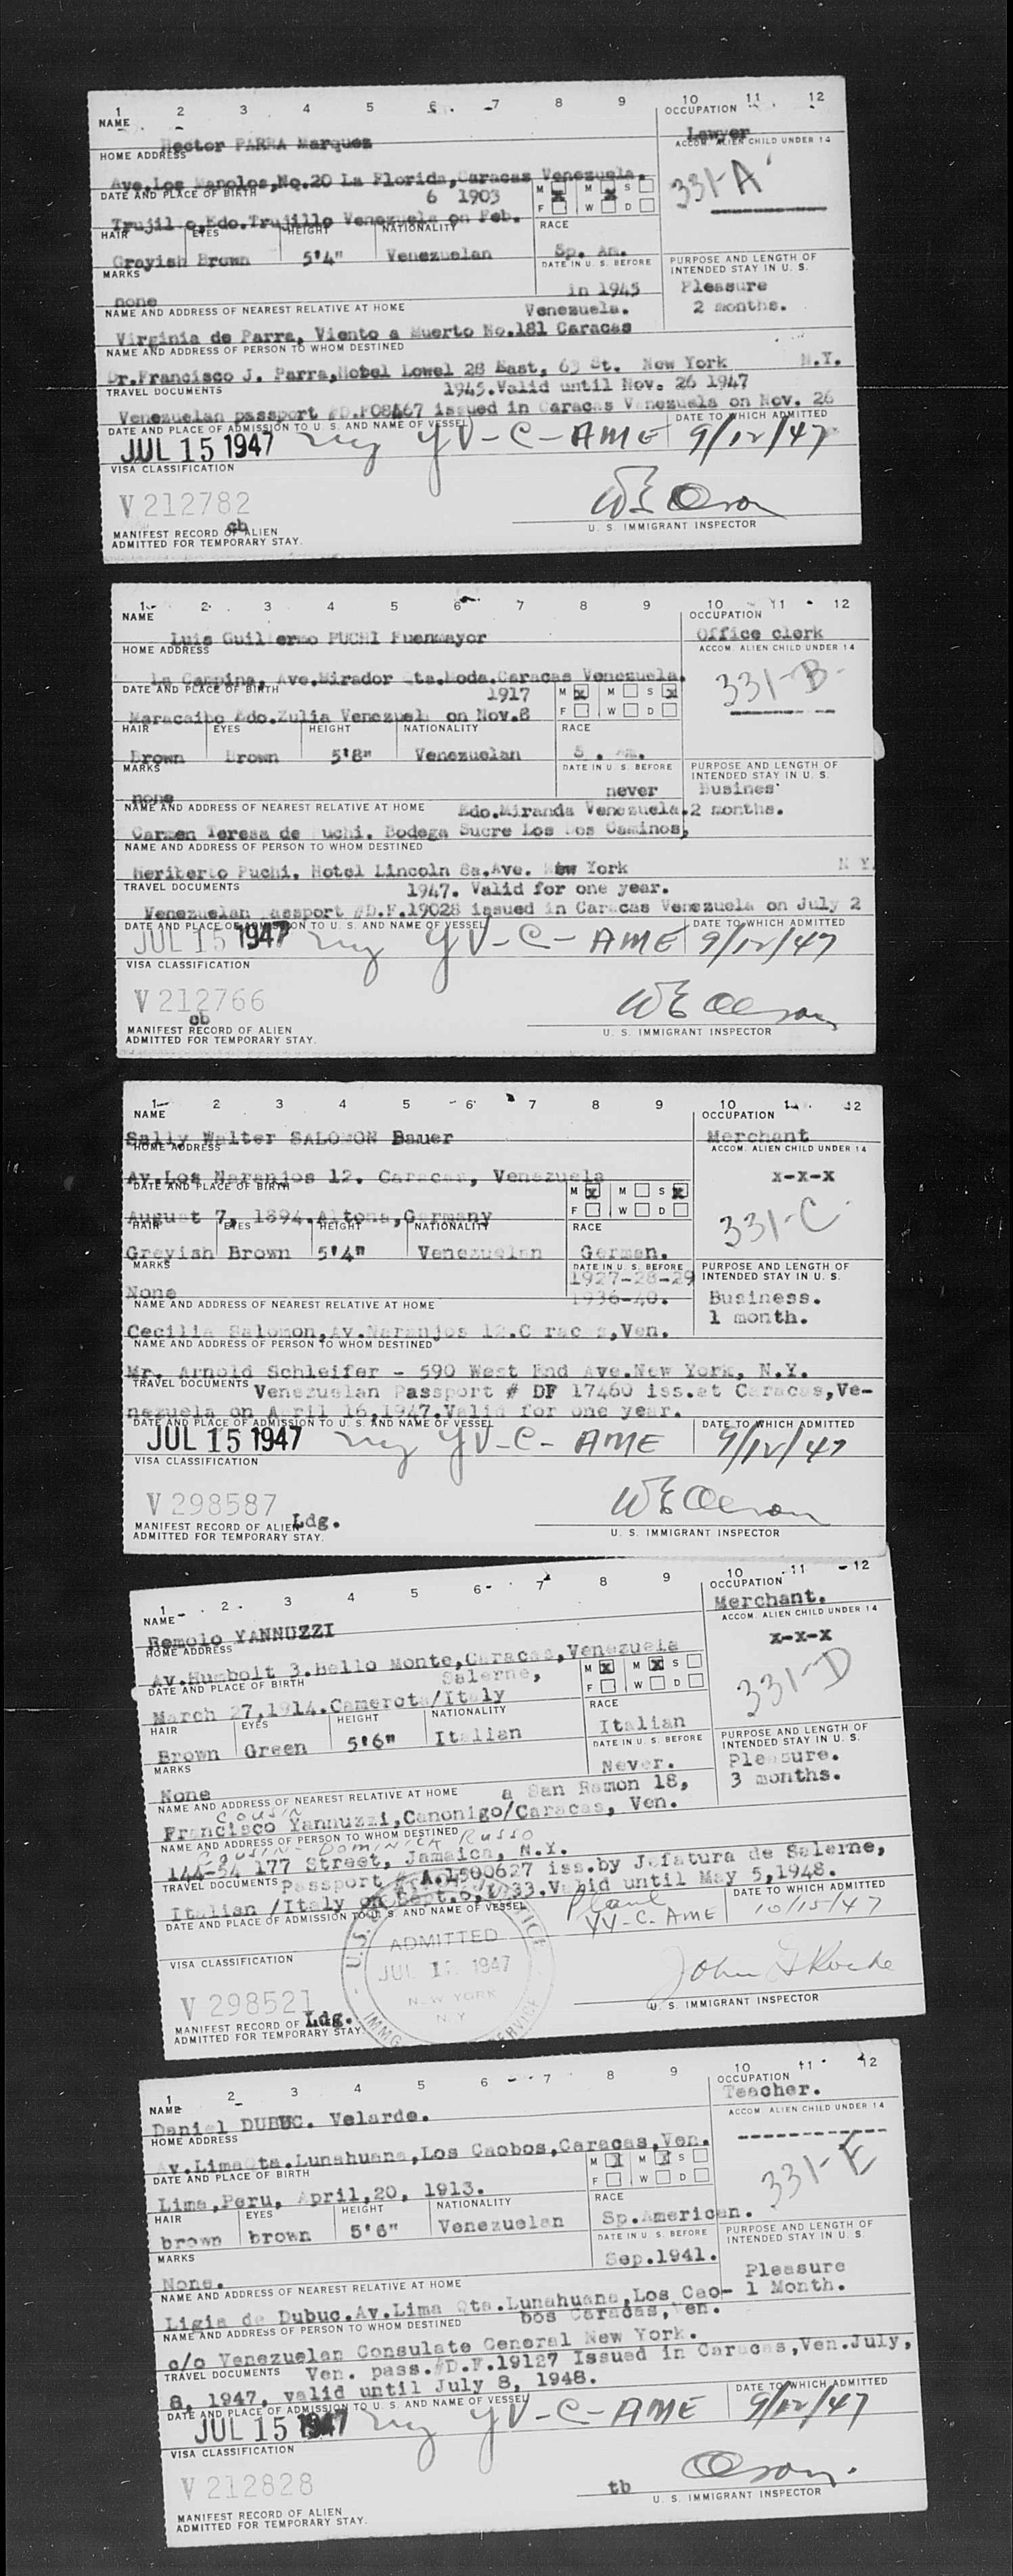 1 2 3 4 5 6 7 8 9 10 11 12
NAME OCCUPATION
Hector PARRA Marquez Lawyer
HOME ADDRESS ACCOM. ALIEN CHILD UNDER 14
Ave.Los No.20 La Florida,Caracas Venezuela. 331-A
DATE AND PLACE OF BIRTH 6 1903 M X M X S
F W D
Trujillo,Edo.Trujillo Venezuela on Feb.
HAIR EYES HEIGHT NATIONALITY RACE
Grayish Brown 5'4" Venezuelan Sp. Am.
MARKS DATE IN U. S. BEFORE PURPOSE AND LENGTH OF INTENDED STAY IN U. S.
none in 1945 Pleasure
NAME AND ADDRESS OF NEAREST RELATIVE AT HOME Venezuela. 2 months.
Virginia de Parra, Viento a Muerto No.181 Caracas
NAME AND ADDRESS OF PERSON TO WHOM DESTINED
Dr.Francisco J. Parra,Hotel Lowel 28 East, 63 St. New York N.Y.
TRAVEL DOCUMENTS 1945.Valid until Nov. 26 1947
Venezuelan passport issued in Caracas Venezuela on Nov. 26
DATE AND PLACE OF ADMISSION TO U. S. AND NAME OF VESSEL DATE TO WHICH ADMITTED
JUL 15 1947 ny YV-C-AME 9/12/47
VISA CLASSIFICATION
V 212782
cb
MANIFEST RECORD OF ALIEN U. S. IMMIGRANT INSPECTOR
ADMITTED FOR TEMPORARY STAY.
1 2 3 4 5 6 7 8 9 10 11 12
NAME OCCUPATION
Luis Guillermo PUCHI Fuenmayor Office clerk
HOME ADDRESS ACCOM. ALIEN CHILD UNDER 14
La Campina, Ave.Mirador Caracas Venezuela. 331-B
DATE AND PLACE OF BIRTH 1917 M X M S X
F W D
Maracaibo Edo.Zulia Venezuela on Nov.8
HAIR EYES HEIGHT NATIONALITY RACE
Brown Brown 5'8" Venezuelan S . Am.
MARKS DATE IN U. S. BEFORE PURPOSE AND LENGTH OF INTENDED STAY IN U. S.
none never Busines
NAME AND ADDRESS OF NEAREST RELATIVE AT HOME Edo.Miranda Venezuela. 2 months.
Carmen Teresa de Puchi. Bodega Sucre Los Dos Caminos,
NAME AND ADDRESS OF PERSON TO WHOM DESTINED
Heriberto Puchi. Hotel Lincoln 8a.Ave. New York N Y.
TRAVEL DOCUMENTS 1947. Valid for one year.
Venezuelan passport #D.F.19028 issued in Caracas Venezuela on July 2
DATE AND PLACE OF ADMISSION TO U. S. AND NAME OF VESSEL DATE TO WHICH ADMITTED
JUL 15 1947 ny YV-C-AME 9/12/47
VISA CLASSIFICATION
V 212766
cb
MANIFEST RECORD OF ALIEN U. S. IMMIGRANT INSPECTOR
ADMITTED FOR TEMPORARY STAY.
1 2 3 4 5 6 7 8 9 10 11 12
NAME OCCUPATION
Sally Walter SALOMON Bauer Merchant
HOME ADDRESS ACCOM. ALIEN CHILD UNDER 14
Av.Los Naranjos 12. Caracas, Venezuela x-x-x
DATE AND PLACE OF BIRTH M X M S X
F W D
August 7, 1894.Altona,Germany 331-C
HAIR EYES HEIGHT NATIONALITY RACE
Greyish Brown 5'4" Venezuelan German.
MARKS DATE IN U. S. BEFORE PURPOSE AND LENGTH OF INTENDED STAY IN U. S.
None 1927-28-29 1936-40. Business.
NAME AND ADDRESS OF NEAREST RELATIVE AT HOME 1 month.
Cecilia Salomon,Av.Naranjos 12.Caracas,Ven.
NAME AND ADDRESS OF PERSON TO WHOM DESTINED
Mr. Arnold Schleifer - 590 West End Ave.New York, N.Y.
TRAVEL DOCUMENTS Venezuelan Passport # DF 17460 iss.at Caracas,Ve-
nezuela on April 16,1947.Valid for one year.
DATE AND PLACE OF ADMISSION TO U. S. AND NAME OF VESSEL DATE TO WHICH ADMITTED
JUL 15 1947 ny YV-C-AME 9/12/47
VISA CLASSIFICATION
V 298587
MANIFEST RECORD OF ALIEN Ldg. U. S. IMMIGRANT INSPECTOR
ADMITTED FOR TEMPORARY STAY.
1 2 3 4 5 6 7 8 9 10 11 12
NAME OCCUPATION
Remolo YANNUZZI Merchant.
HOME ADDRESS ACCOM. ALIEN CHILD UNDER 14
Av.Humbolt 3.Bello Monte,Caracas,Venezuela x-x-x
DATE AND PLACE OF BIRTH Salerne, M X M X S
F W D
March 27,1914.Camerota/Italy 331-D
HAIR EYES HEIGHT NATIONALITY RACE
Brown Green 5'6" Italian Italian
MARKS DATE IN U. S. BEFORE PURPOSE AND LENGTH OF INTENDED STAY IN U. S.
None Never. Pleasure.
NAME AND ADDRESS OF NEAREST RELATIVE AT HOME a San Ramon 18, 3 months.
Cousin
Francisco Yannuzzi,Canonigo/Caracas, Ven.
NAME AND ADDRESS OF PERSON TO WHOM DESTINED
COUSIN - DOMINICK RUSSO
144-54 177 Street, Jamaica, N.Y.
TRAVEL DOCUMENTS Passport # A.1500627 iss.by Jefatura de Salerne,
Italian /Italy on Valid until May 5,1948.
DATE AND PLACE OF ADMISSION TO U. S. AND NAME OF VESSEL DATE TO WHICH ADMITTED
Plane YV-C-AME 10/15/47
ADMITTED
JUL 1 1947
NEW YORK
N. Y.
VISA CLASSIFICATION
V 298521
John J Roche
MANIFEST RECORD OF Ldg. U. S. IMMIGRANT INSPECTOR
ADMITTED FOR TEMPORARY STAY.
1 2 3 4 5 6 7 8 9 10 11 12
NAME OCCUPATION
Daniel DUBUC. Velarde. Teacher.
HOME ADDRESS ACCOM. ALIEN CHILD UNDER 14
Av.Lima Qta.Lunahuana,Los Caobos,Caracas,Ven.
DATE AND PLACE OF BIRTH M X M X S
F W D
Lima,Peru, April,20, 1913. 331-E
HAIR EYES HEIGHT NATIONALITY RACE
brown brown 5'6" Venezuelan Sp.American.
MARKS DATE IN U. S. BEFORE PURPOSE AND LENGTH OF INTENDED STAY IN U. S.
None. Sep.1941. Pleasure
NAME AND ADDRESS OF NEAREST RELATIVE AT HOME 1 Month.
Ligia de Dubuc.Av.Lima Qta.Lunahuana,Los Cao-
bos Caracas, Ven.
NAME AND ADDRESS OF PERSON TO WHOM DESTINED
c/o Venezuelan Consulate General New York.
TRAVEL DOCUMENTS Ven. pass.#D.F.19127 Issued in Caracas,Ven.July,
8, 1947, valid until July 8, 1948.
DATE AND PLACE OF ADMISSION TO U. S. AND NAME OF VESSEL DATE TO WHICH ADMITTED
JUL 15 1947 ny YV-C-AME 9/12/47
VISA CLASSIFICATION
V 212828
tb
MANIFEST RECORD OF ALIEN U. S. IMMIGRANT INSPECTOR
ADMITTED FOR TEMPORARY STAY.